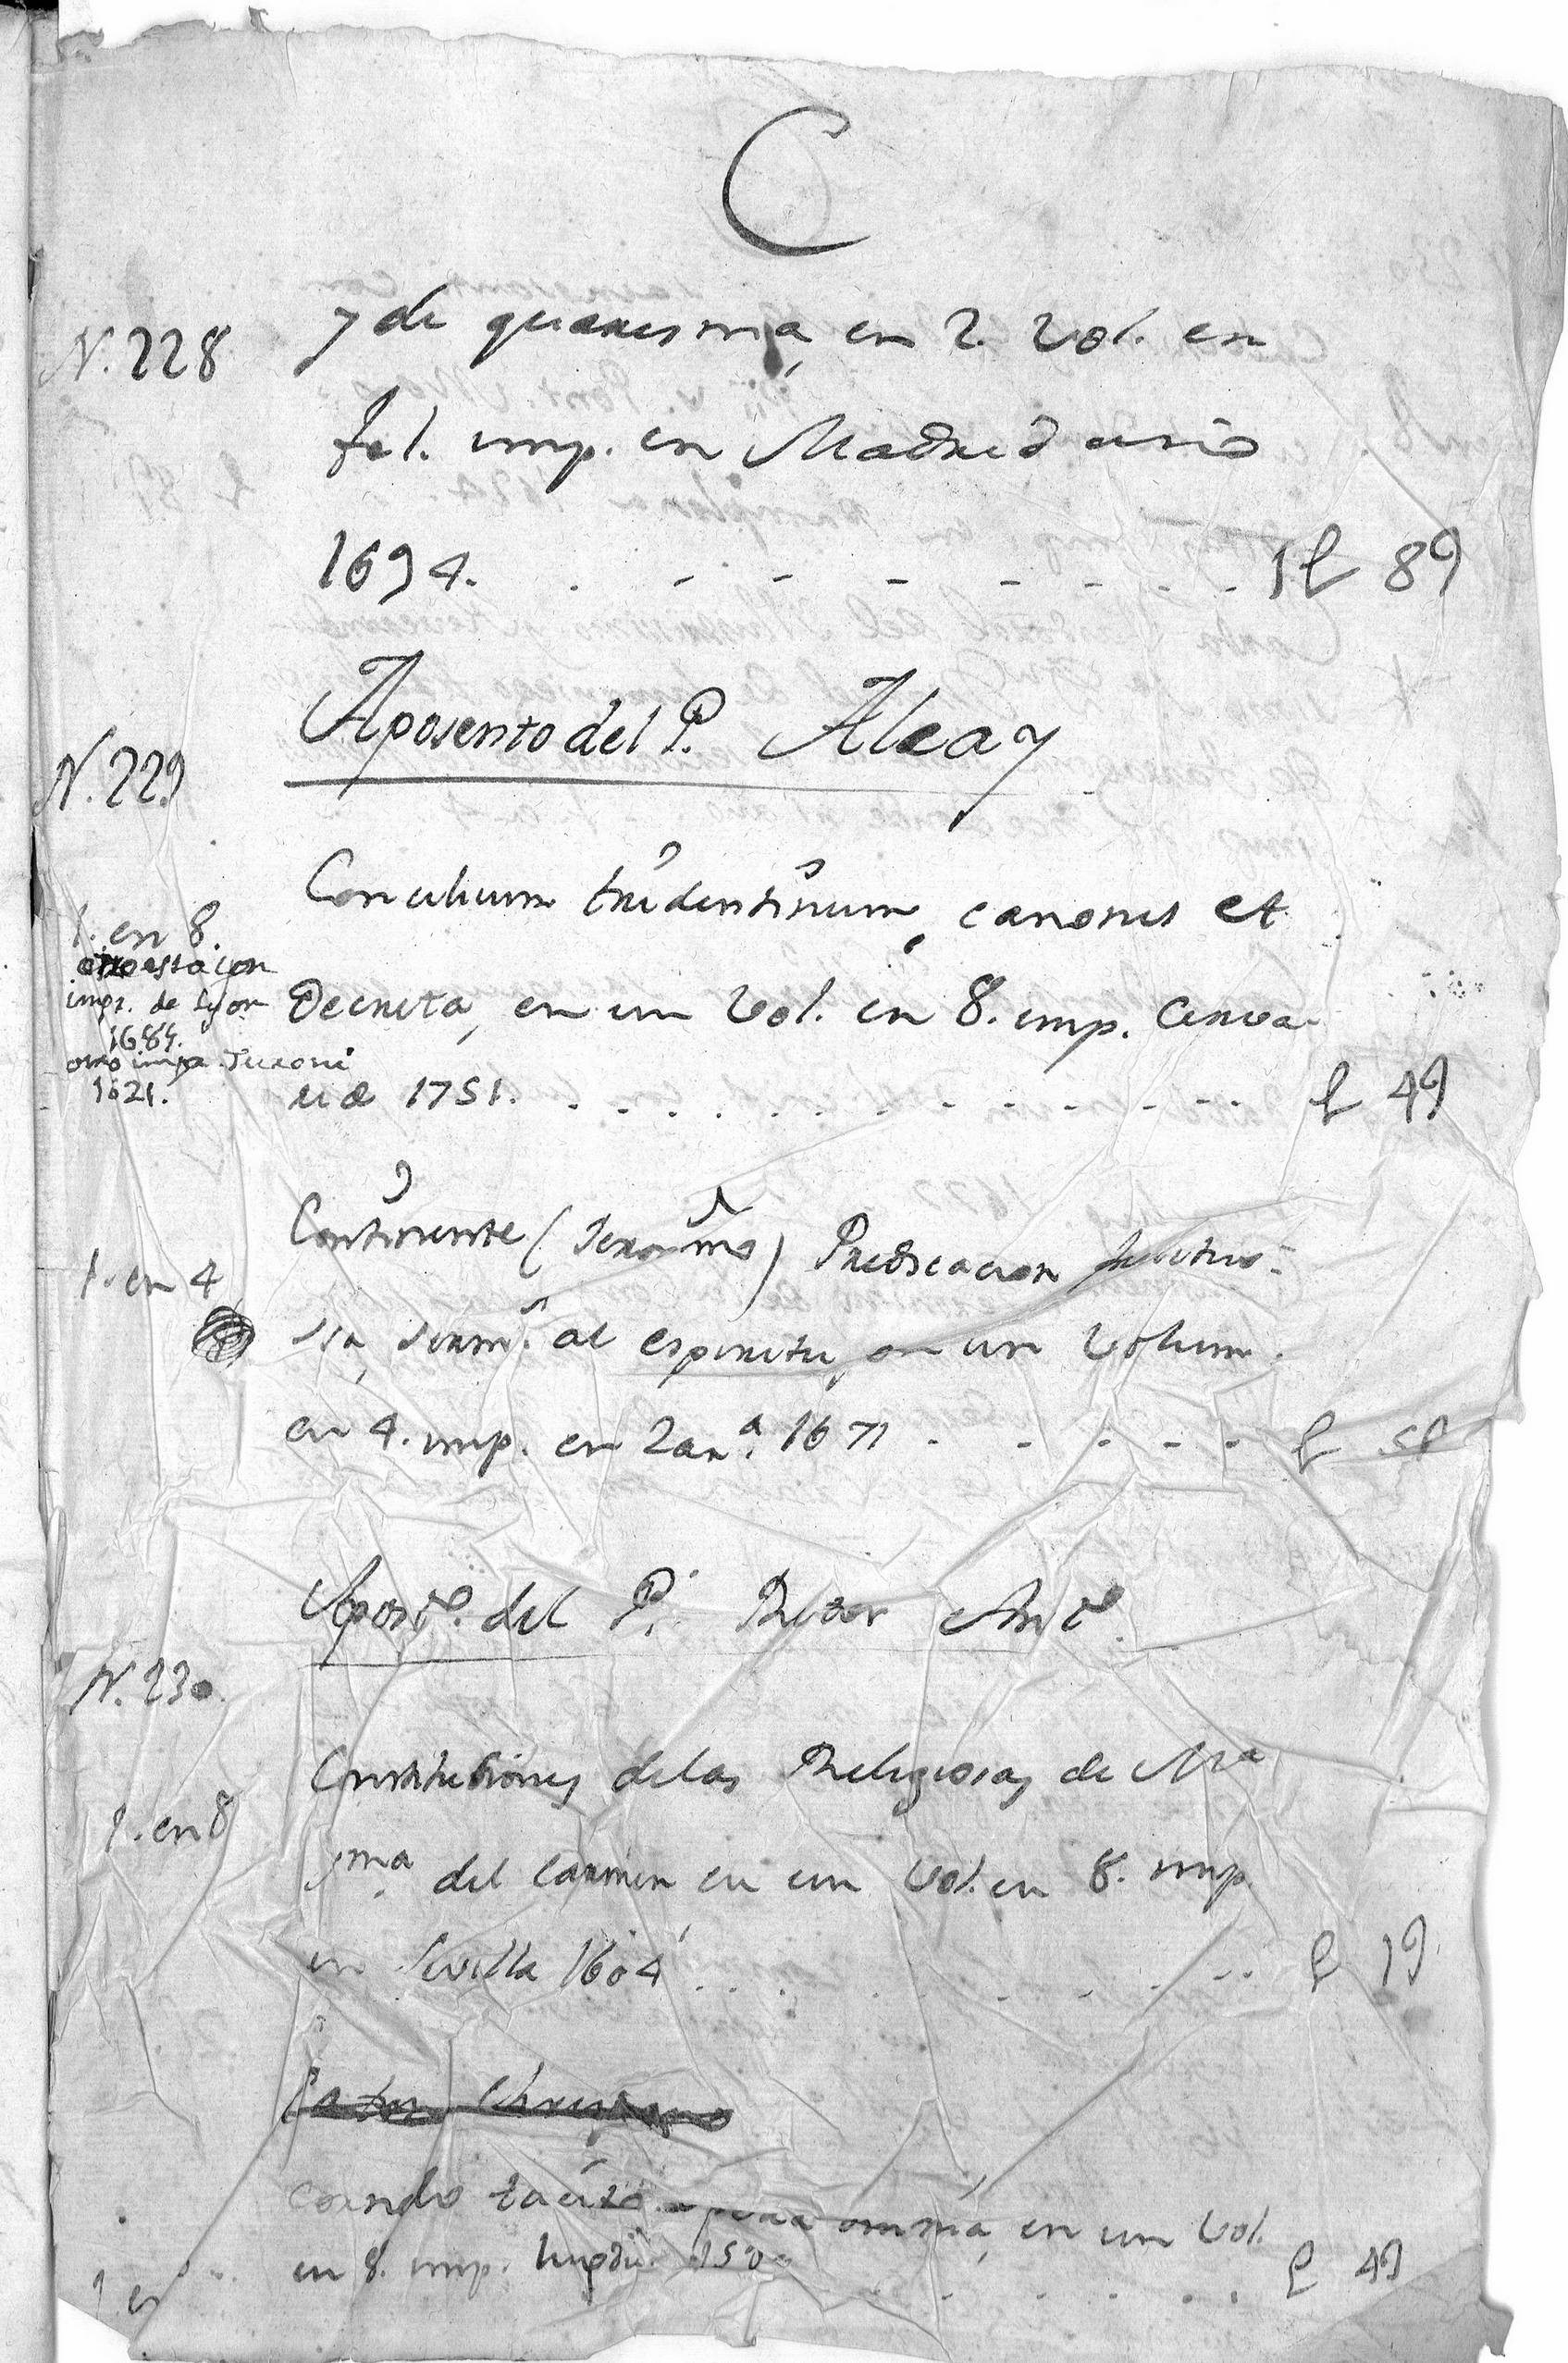 C
N. 228
y de quaresma, en 2. Vol. en
fol. imp. en Madrid año
1694. . - - - - - - . . 1 l 89
Aposento del P. Alcay
N. 229
Concilium tridentinum, canones et
1. en 8.
otro esta con
impr. de Lyon
1684.
otro impr. Turoni
1621.
Decreta, en un Vol. en 8. imp. Cerva-
riæ 1751. . . . . . . . . - - - - - - l 49
Continente (Jeronimo) Predicacion fructuo-
1. en 4
sa, serm.ˢ al espiritu, en un Volum.
en 4. imp. en Zar.ᵃ 1671 - - - - - - l
Apos.ᵗᵒ del P. Retor Ant.º
N. 230
Constitutiones de las Religiosas de Mª
1. en 8
Sᵐᵃ. del Carmen en un Vol. en 8. imp.
en Sevilla 1604 . . . . . . - - - l 19
Cornelio tacito opera omnia, en un Vol.
en 8. imp. Lugdu. . . . . . l 49
1 en